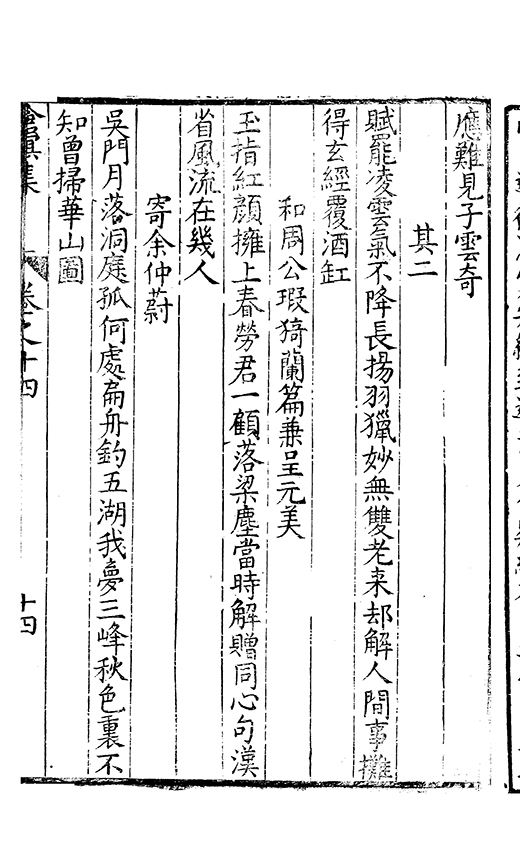 應難見子雲奇
其二
賦罷凌雲氣不降長揚羽獵妙無雙老来却解人間事攤
得玄經覆酒缸
和周公瑕猗蘭篇兼呈元美
玉指紅顏擁上春勞君一顧落梁塵當時解贈同心句漢
省風流在幾人
寄余仲蔚
吳門月落洞庭孤何處扁舟釣五湖我夢三峰秋色裏不
知曾掃華山圖
集
卷之十四
十四